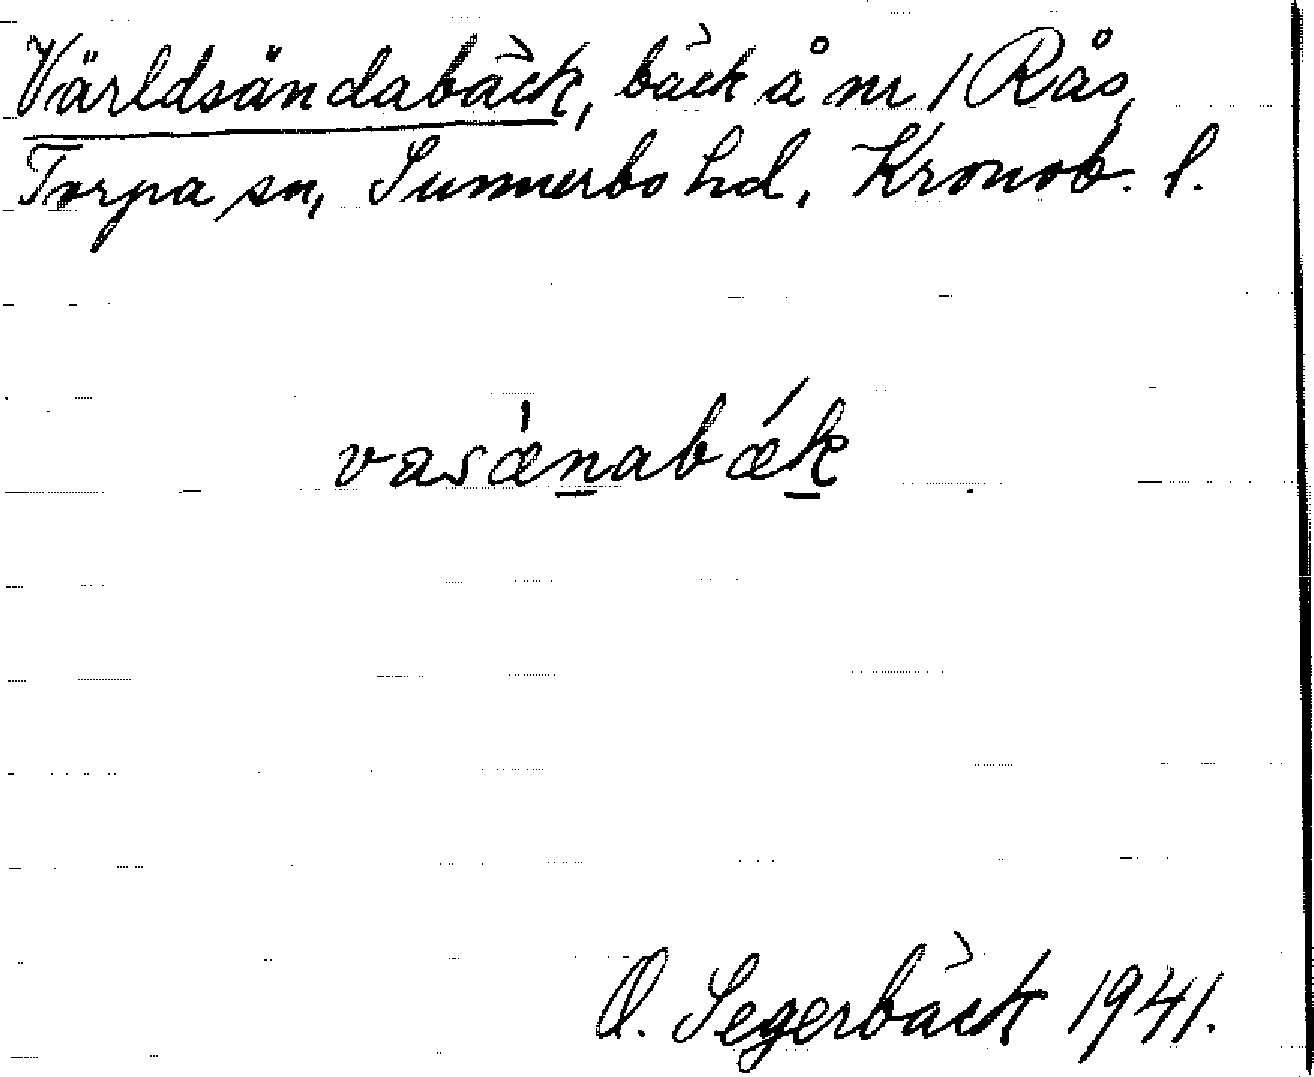 Världsändabäck, bäck å nr 1 Rås,
Torpa sn, Sunnerbo hd, Kronob. l.
vasǽnabǽk
O. Segerbäck 1941.